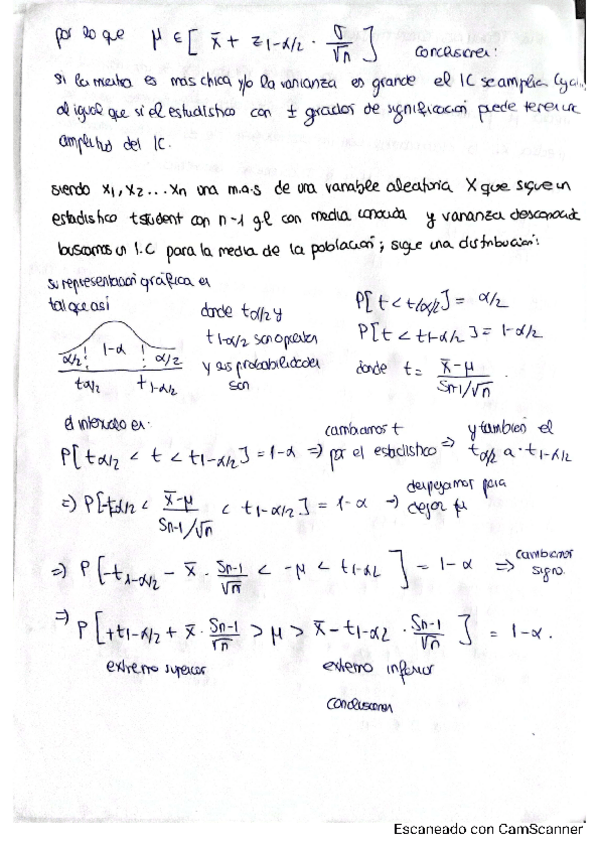 por lo que μ ∈ [ x̄ + z1-α/2 · σ/√n ] conclusiones:
si la muestra es más chica y/o la varianza es grande el IC se amplía
al igual que si el estadístico con ± grados de significación puede
amplitud del IC.
siendo x1, x2 ... xn una m.a.s de una variable aleatoria X que sigue un
estadístico tstudent con n-1 gl con media conocida y varianza
buscamos un I.C para la media de la población; sigue una distribución:
su representación gráfica es
tal que así
donde tα/2 y
t1-α/2 son
y sus probabilidades
son
P[t < tα/2] = α/2
P[t < t1-α/2] = 1-α/2
donde t = x̄-μ / Sn-1/√n .
α/2 1-α α/2
tα/2 t1-α/2
el intervalo es:
P[tα/2 < t < t1-α/2] = 1-α ⇒ cambiamos t por el estadístico ⇒ y también el tα/2 a -t1-α/2
⇒ P[-tα/2 < x̄-μ / Sn-1/√n < t1-α/2] = 1-α → despejamos para dejar μ
⇒ P[-t1-α/2 - x̄ · Sn-1/√n < -μ < t1-α2 ] = 1-α ⇒ cambiamos signo.
⇒ P[+t1-α/2 + x̄ · Sn-1/√n > μ > x̄ - t1-α2 · Sn-1/√n ] = 1-α.
extremo superior extremo inferior
conclusiones
Escaneado con CamScanner